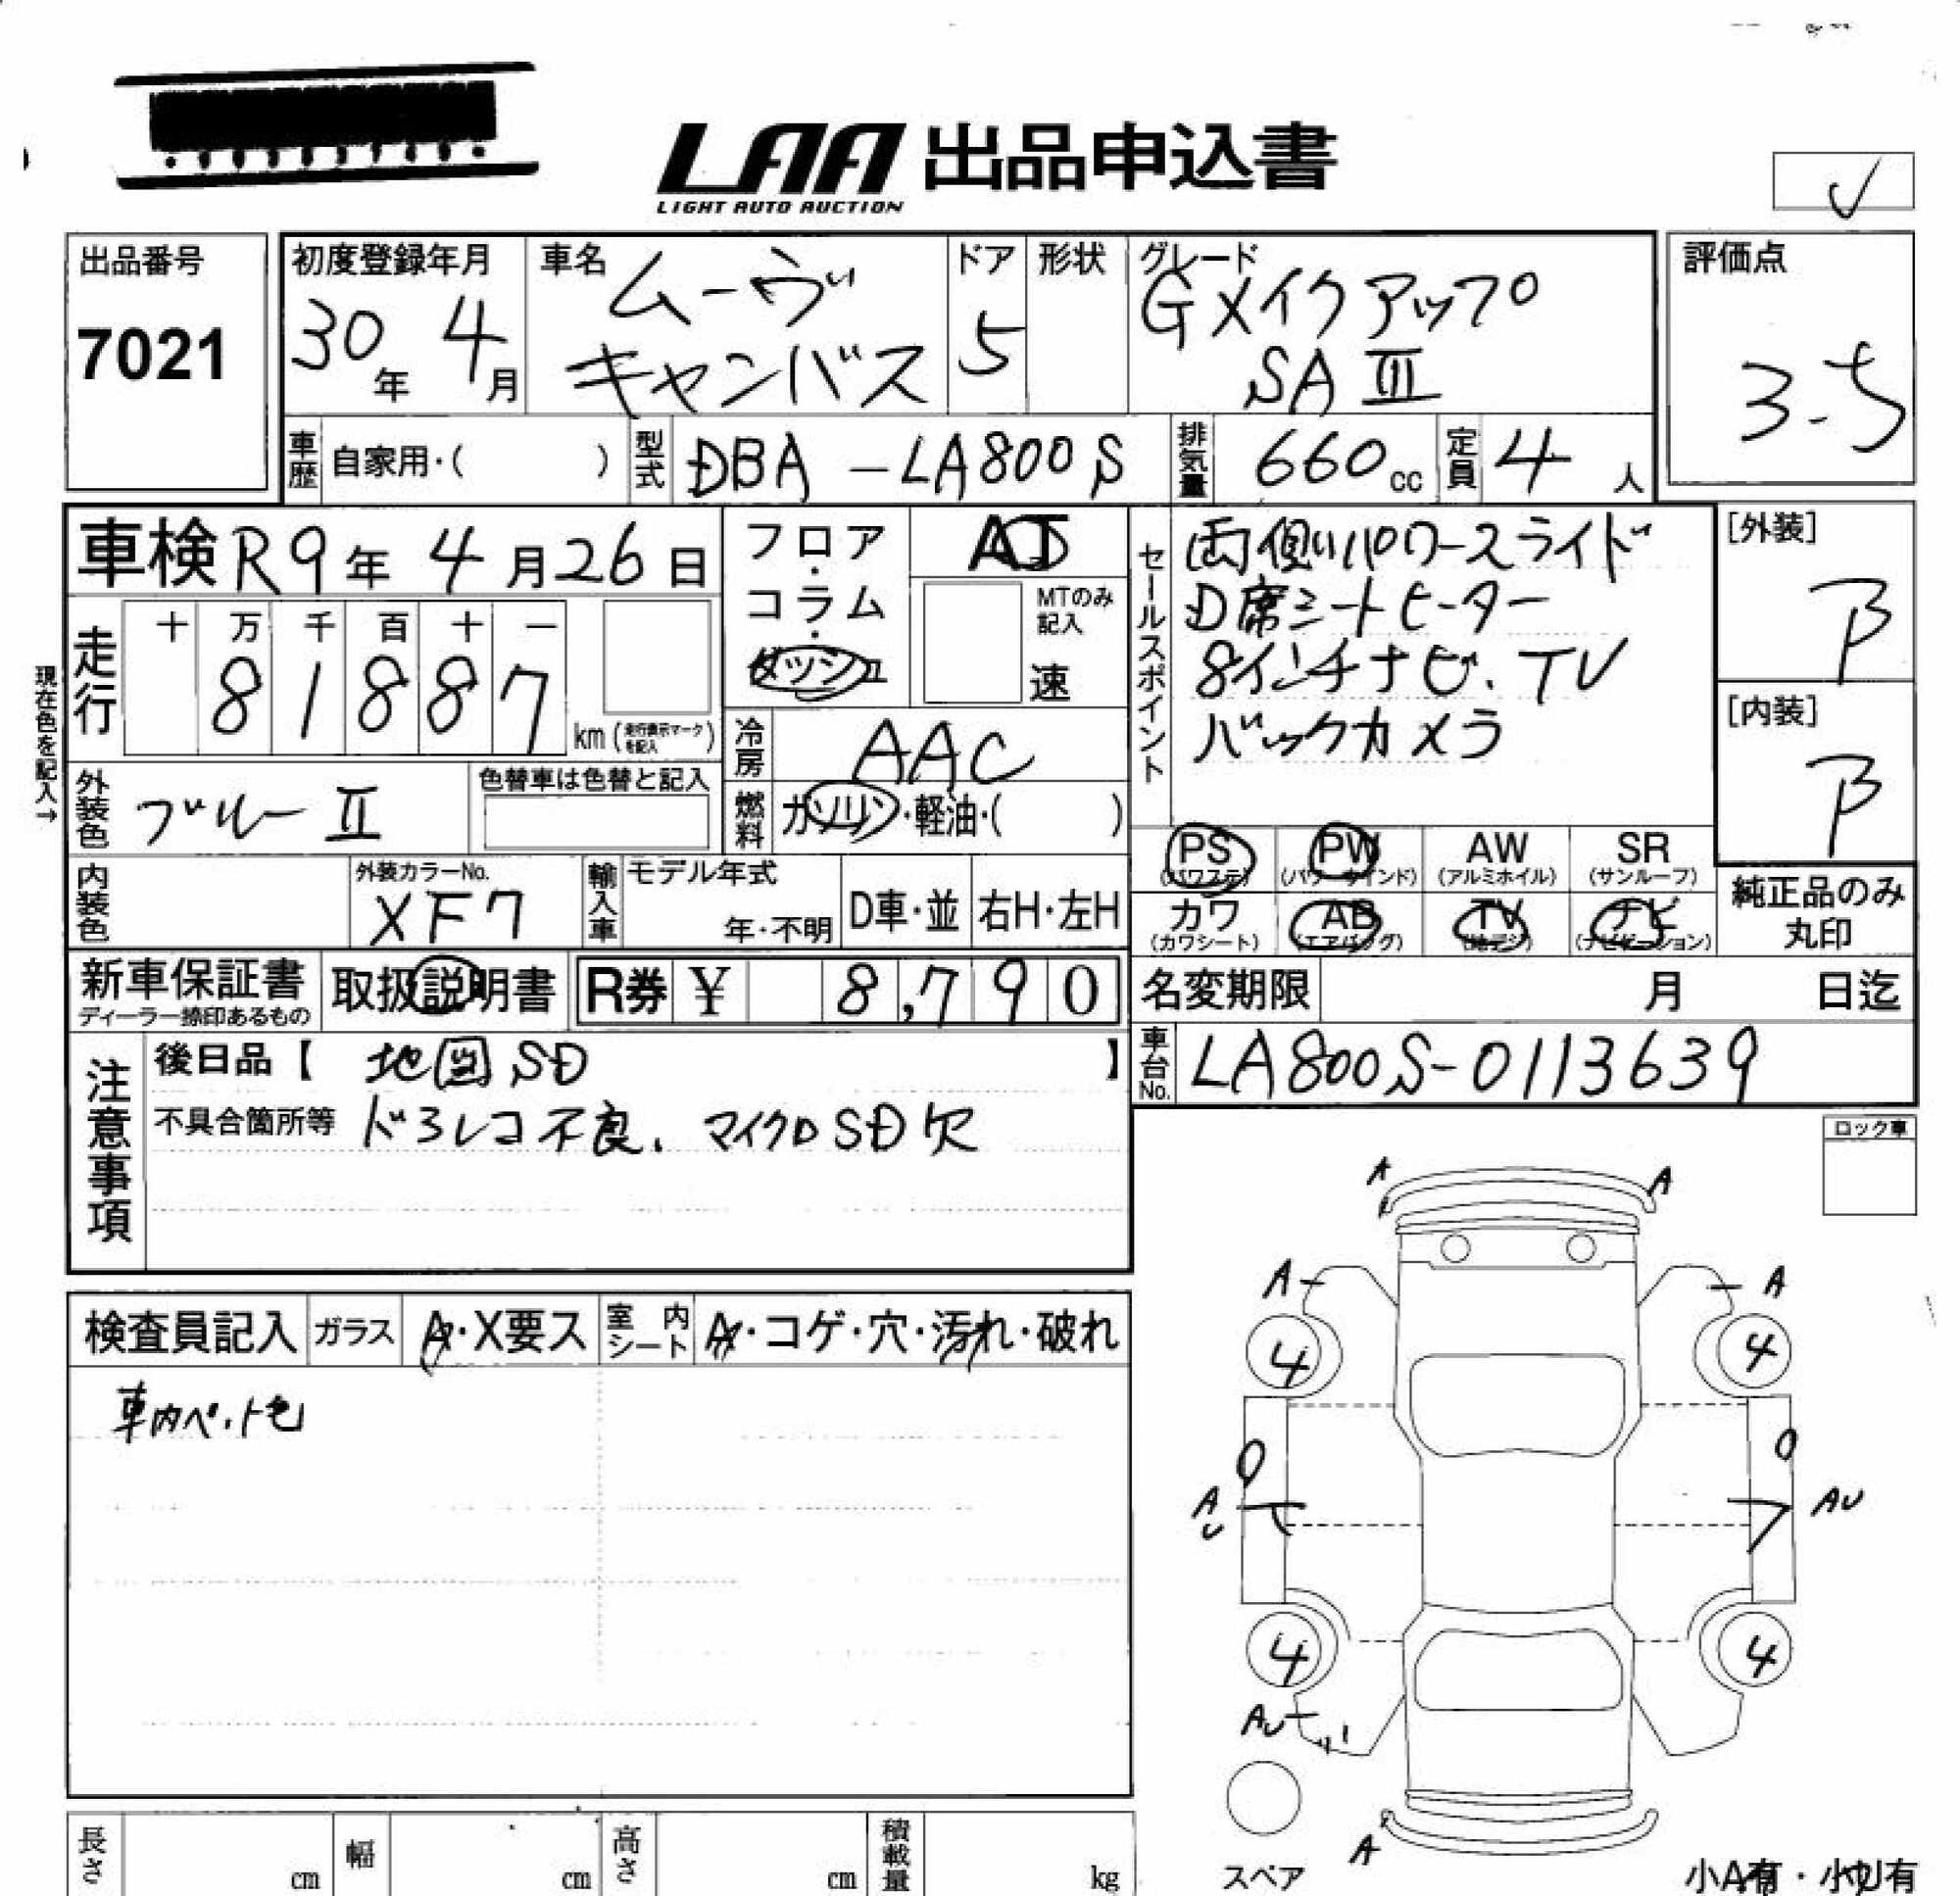 LAA 出品申込書
LIGHT AUTO AUCTION
出品番号
7021
初度登録年月
30年 4月
車名
ムーヴ
キャンバス
ドア
5
形状
グレード
Gメイクアップ
SA III
評価点
3.5
車歴 自家用・( )
型式 DBA-LA800S
排気量 660cc
定員 4人
車検 R9年 4月26日
フロア・コラム・ダッシュ
AT
MTのみ記入
速
走行
十万千百十一
81887
km(走行表示マークを記入)
現在色を記入→
冷房 AAC
外装色 ブルーII
色替車は色替と記入
燃料 ガソリン・軽油・( )
内装色
外装カラーNo.
XF7
輸入車
モデル年式
年・不明
D車・並
右H・左H
セールスポイント
両側パワースライド
D席シートヒーター
8インチナビ、TV
バックカメラ
[外装]
β
[内装]
β
PS (パワステ)
PW (パワーウインド)
AW (アルミホイル)
SR (サンルーフ)
カワ (カワシート)
AB (エアバッグ)
TV (地デジ)
ナビ (ナビゲーション)
純正品のみ
丸印
新車保証書
ディーラー捺印あるもの
取扱説明書
R券 ¥ 8,790
名変期限 月 日迄
車台No. LA800S-0113639
注意事項
後日品【 地図SD 】
不具合箇所等 ドラレコ不良、マイクロSD欠
ロック車
検査員記入
ガラス A・X要ス
室内シート A・コゲ・穴・汚れ・破れ
A A
A A
4 4
A AU
4 4
AU
A
スペア
小A有・小U有
長さ cm
幅 cm
高さ cm
積載量 kg